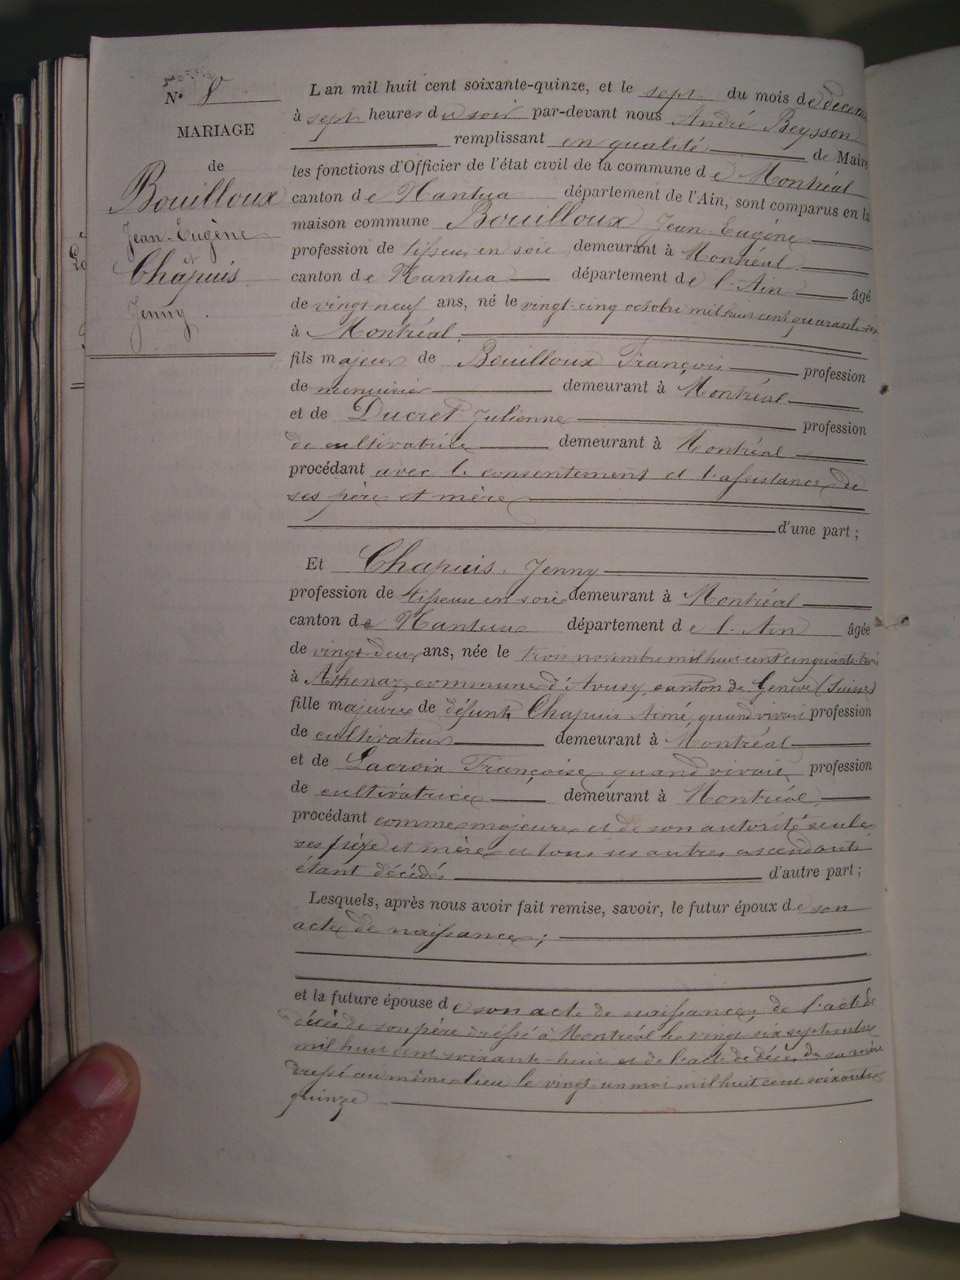 N° 8
MARIAGE
de
Bouilloux
Jean-Eugène
et
Chapuis
Jenny.
L'an mil huit cent soixante-quinze, et le sept du mois de décembre
à sept heures du soir par-devant nous André Beysson
remplissant en qualité de Maire
les fonctions d'Officier de l'état civil de la commune de Montréal
canton de Nantua département de l'Ain, sont comparus en la
maison commune Bouilloux Jean Eugène
profession de tisseur en soie demeurant à Montréal
canton de Nantua département de l'Ain âgé
de vingt neuf ans, né le vingt-cinq octobre mil huit cent quarante-six
à Montréal.
fils majeur de Bouilloux François profession
de menuisier demeurant à Montréal
et de Ducret Julienne profession
de cultivatrice demeurant à Montréal
procédant avec le consentement et l'assistance de
ses père et mère
d'une part ;
Et Chapuis Jenny
profession de tisseuse en soie demeurant à Montréal
canton de Nantua département de l'Ain âgée
de vingt-deux ans, née le trois novembre mil huit cent cinquante-trois
à Athenaz, commune d'Avusy canton de Genève (Suisse)
fille majeure de défunt Chapuis Aimé, quand vivait profession
de cultivateur demeurant à Montréal
et de Lacroix Françoise, quand vivait profession
de cultivatrice demeurant à Montréal
procédant comme majeure et de son autorité seule
ses père et mère et tous ses autres ascendants
étant décédés d'autre part ;
Lesquels, après nous avoir fait remise, savoir, le futur époux de son
acte de naissance ;
et la future épouse de son acte de naissance, de l'acte de
décès de son père dressé à Montréal le vingt six septembre
mil huit cent soixante-huit et de l'acte de décès de sa mère
dressé au même lieu le vingt-un mai mil huit cent soixante
quinze